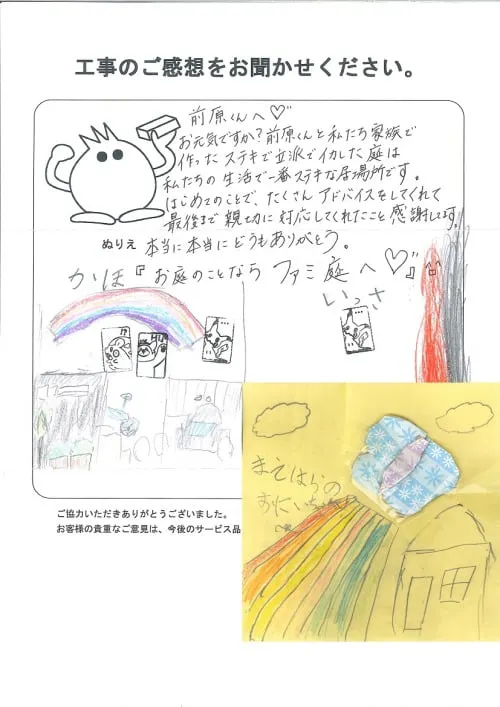 工事のご感想をお聞かせください。
前原くんへ♡
お元気ですか?前原くんと私たち家族で
作ったステキで立派でイカした庭は
私たちの生活で一番ステキな居場所です。
はじめてのことで、たくさんアドバイスをしてくれて
最後まで親切に対応してくれたこと感謝します。
ぬりえ
本当に本当にどうもありがとう。
かほ『お庭のことなら ファミ庭へ♡』
いっさ
まえはらの
おにいちゃん
へ
ご協力いただきありがとうございました。
お客様の貴重なご意見は、今後のサービス品